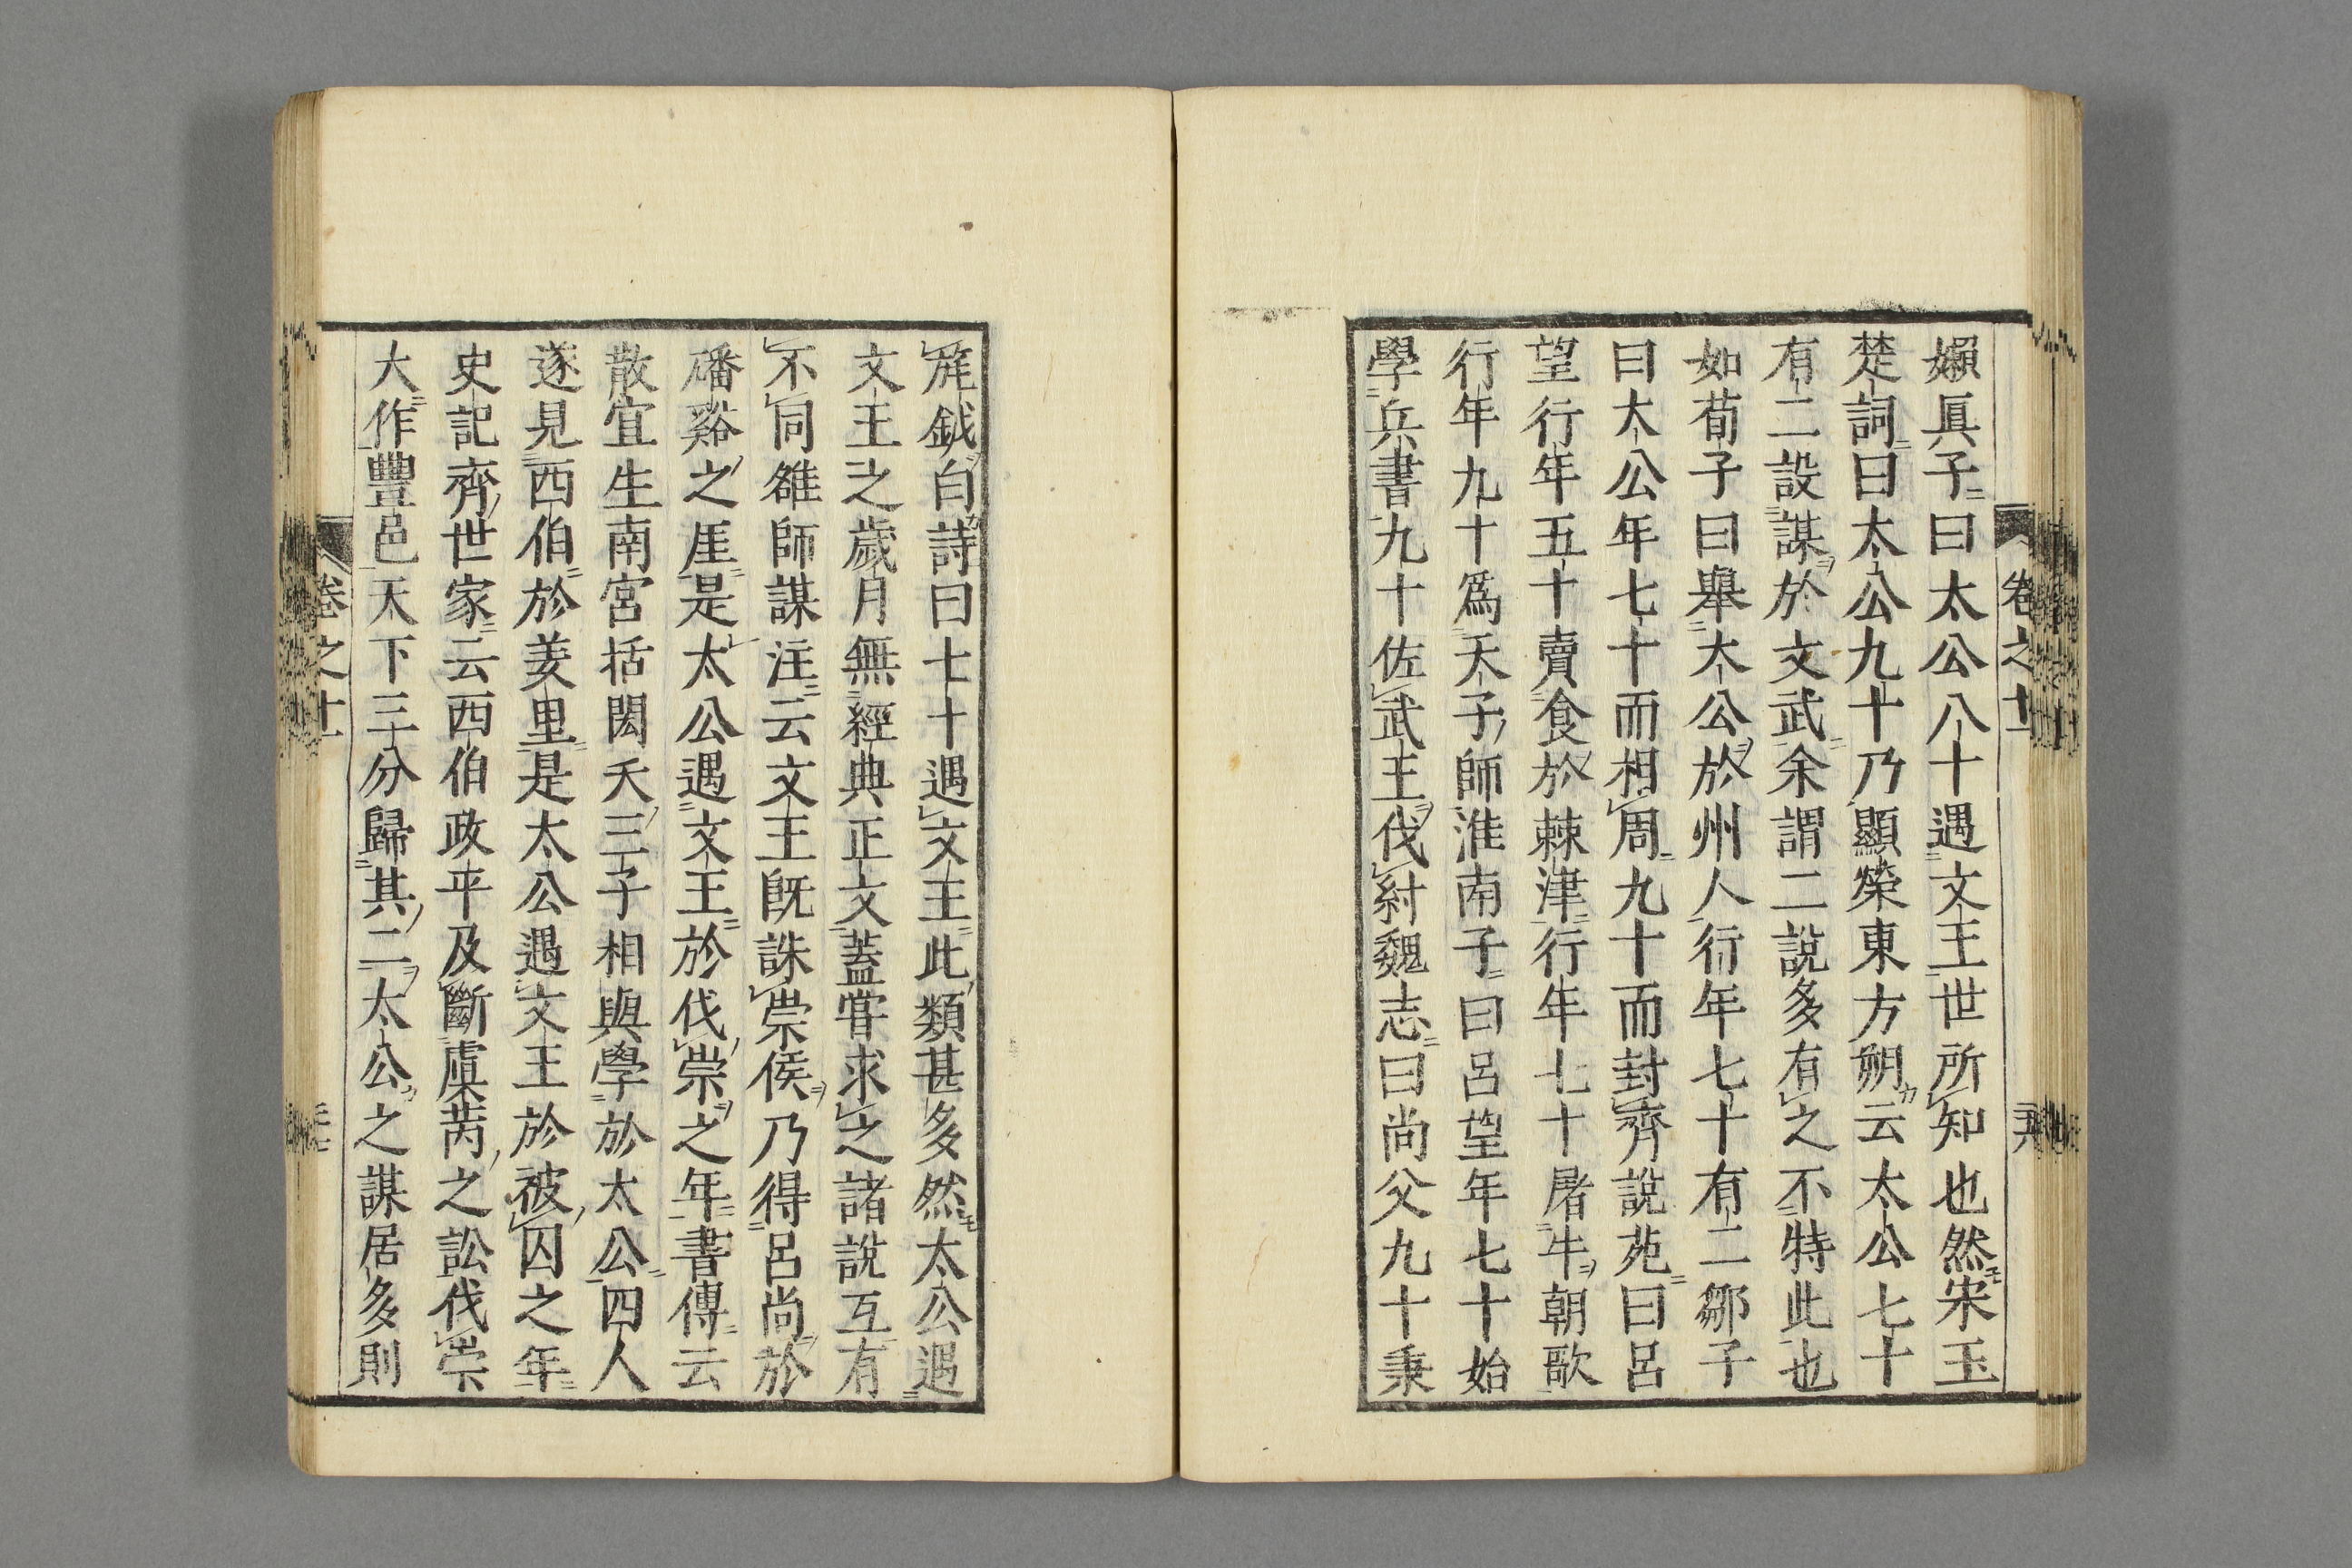 嬾眞子曰太公八十遇文王世所知也然宋玉
楚詞曰太公九十乃顯榮東方朔云太公七十
有二設謀於文武余謂二說多有之不特此也
如荀子曰舉太公於州人行年七十有二鄒子
曰太公年七十而相周九十而封齊說苑曰呂
望行年五十賣食於棘津行年七十屠牛朝歌
行年九十爲天子師淮南子曰呂望年七十始
學兵書九十佐武王伐紂魏志曰尚父九十秉
旄鉞白詩曰七十遇文王此類甚多然太公遇
文王之歲月無經典正文蓋甞求之諸說互有
不同雒師謀注云文王旣誅崇侯乃得呂尚於
磻谿之厓是太公遇文王於伐崇之年書傳云
散宜生南宮括閎夭三子相與學於太公四人
遂見西伯於羑里是太公遇文王於被囚之年
史記齊世家云西伯政平及斷虞芮之訟伐崇
大作豐邑天下三分歸其二太公之謀居多則
卷之十